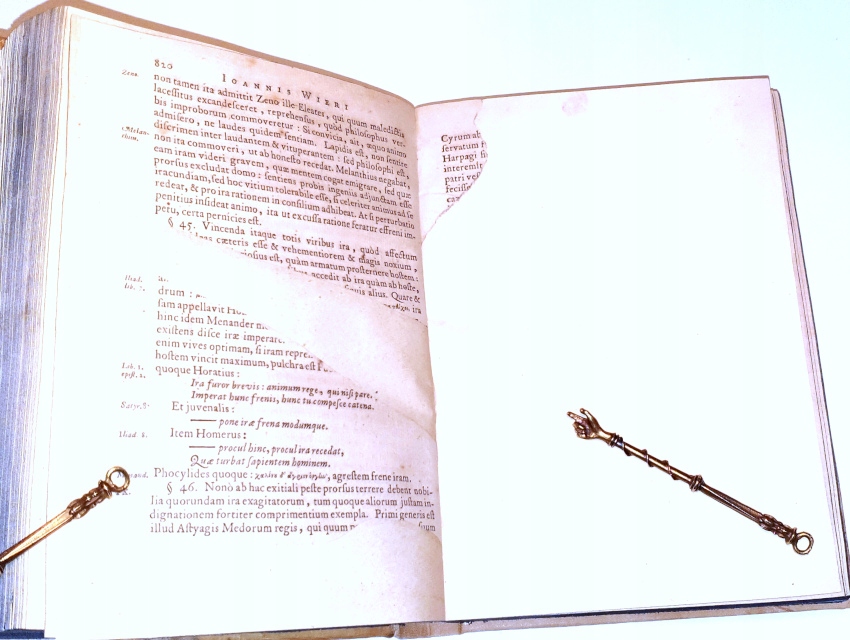 820 IOANNIS WIERI
Zeno. non tamen ita admittit Zeno ille Eleates, qui quum maledictis
lacessitus excandesceret, reprehensus, quòd philosophus ver-
bis improborum commoveretur: Si convicia, ait, æquo animo
admisero, ne laudes quidem sentiam. Lapidis est, non sentire
Melan-
thius. discrimen inter laudantem & vituperantem: sed philosophi est,
non ita commoveri, ut ab honesto recedat. Melanthius negabat,
eam iram videri gravem, quæ mentem cogat emigrare, sed quæ
prorsus excludat domo: sentiens probis ingeniis adjunctam esse
iracundiam, sed hoc vitium tolerabile esse, si celeriter animus ad se
redeat, & pro ira rationem in consilium adhibeat. At si perturbatio
penitius insideat animo, ita ut excussa ratione feratur effreni im-
petu, certa pernicies est.
§ 45. Vincenda itaque totis viribus ira, quòd affectum
cæteris esse & vehementiorem & magis noxium,
est, quàm armatum prosternere hostem:
accedit ab ira quàm ab hoste,
alius. Quare &
ira
Iliad.
lib.
drum:
sam appellavit
hinc idem Menander
existens disce iræ imperare.
enim vives optimam, si iram
hostem vincit maximum, pulchra est
Lib. 1.
epist. 2. quoque Horatius:
Ira furor brevis: animum rege, qui nisi paret,
Imperat hunc frenis, hunc tu compesce catena.
Satyr. 8. Et juvenalis:
— pone iræ frena modumque.
Iliad. Item Homerus:
— procul hinc, procul ira recedat,
Quæ turbat sapientem hominem.
Phocylides quoque: agrestem frene iram.
§ 46. Nonò ab hac exitiali peste prorsus terrere debent nobi-
lia quorundam ira exagitatorum, tum quoque aliorum justam in-
dignationem fortiter comprimentium exempla. Primi generis est
illud Astyagis Medorum regis, qui quum
Cyrum ab
servatum
Harpagi
interemit
patri
fecisse